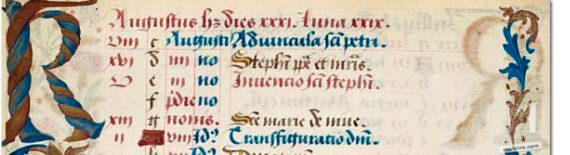 Augustus hʒ dies xxxi. Luna xxix.
viii c Augusti Aduincula sc̄i petri.
xvi d iiii no Stephī pp̄e et mr̄is.
v e iii no Inuencio sc̄i stephī.
f p̄die no
xiii g nonis. Sc̄e marie de niue.
ii viii Id? Transfiguratio dn̄i.